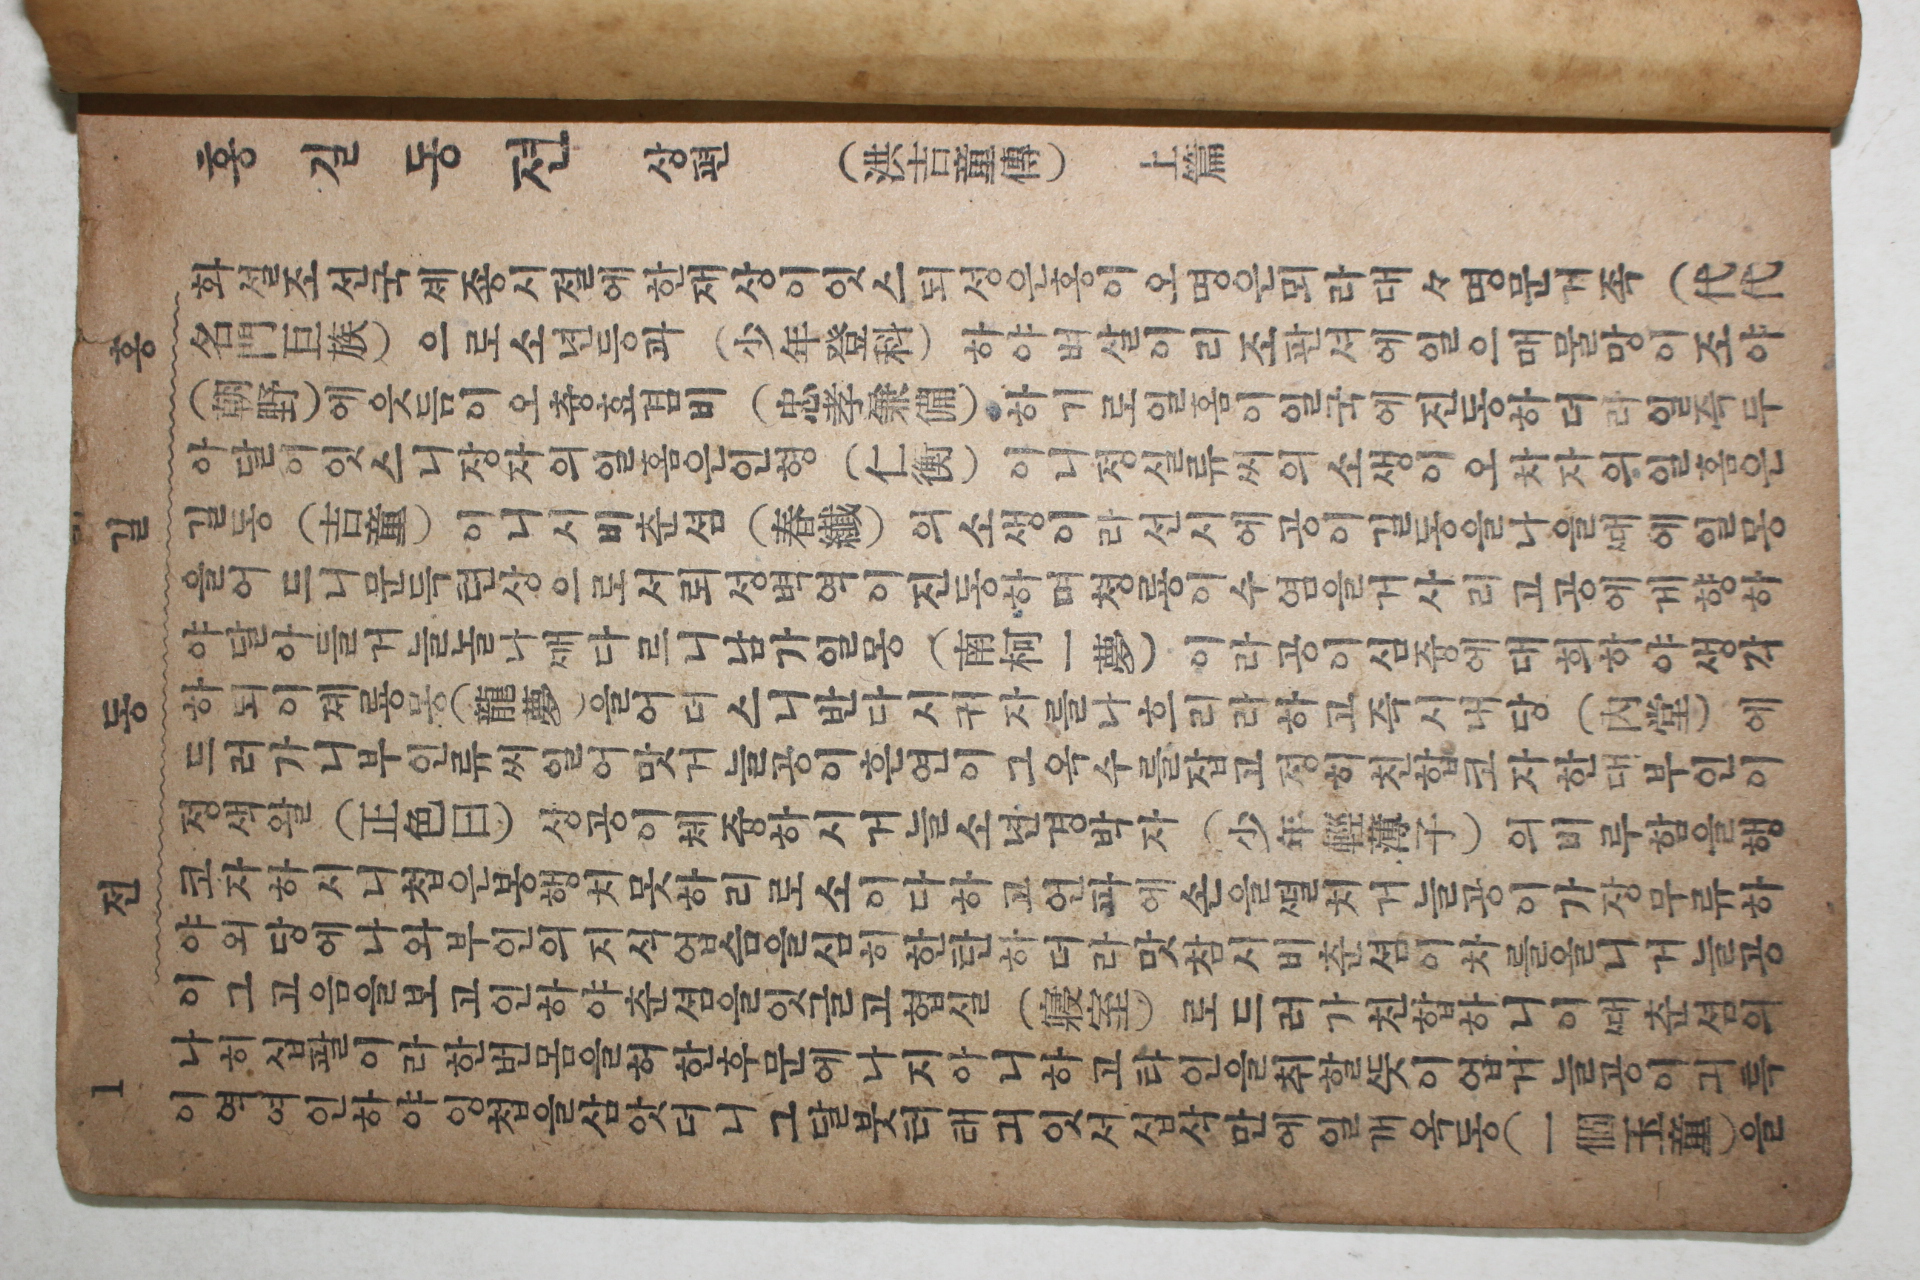 홍길동전 1
홍길동젼 상편 (洪吉童傳) 上篇
화설조선국셰죵시절에한재상이잇스되성은홍이오명은뫼라대々명문거족 (代代
名門巨族) 으로소년등과 (少年登科) 하야벼살이리조판셔에일으매물망이조야
(朝野)에읏듬이오츙효겸비 (忠孝兼備)하기로일홈이일국에진동하더라일즉두
아달이잇스니장자의일홈은인형 (仁衡) 이니졍실류씨의소생이오차자의일홈은
길동 (吉童) 이니시비춘셤 (春纖) 의소생이라선시에공이길동을나을때에일몽
을어드니문득텬상으로서뢰성벽역이진동하며청룡이수염을거사리고공에게향하
야달아들거늘놀나깨다르니남가일몽 (南柯一夢) 이라공이심즁에대희하야생각
하되이졔룡몽(龍夢)을어더스니반다시귀자를나흐리라하고즉시내당 (內堂) 에
드러가니부인류씨일어맛거늘공이흔연이그옥수를잡고졍히친합코자한대부인이
졍색왈 (正色曰) 상공이쳬즁하시거늘소년경박자 (少年輕薄子) 의비루함을행
코자하시니첩은봉행치못하리로소이다하고언파에손을떨치거늘공이가장무류하
야외당에나와부인의지식업슴을심히한탄하더라맛참시비춘셤이차를올니거늘공
이그고음을보고인하야춘셤을잇글고협실 (寢室) 로드러가친합하니이때춘셤의
나히십팔이라한번몸을허한후문에나지아니하고타인을취할뜻이업거늘공이긔특
이역여인하야잉첩을삼앗더니그달붓터태긔잇서십삭만에일개옥동(一個玉童)을